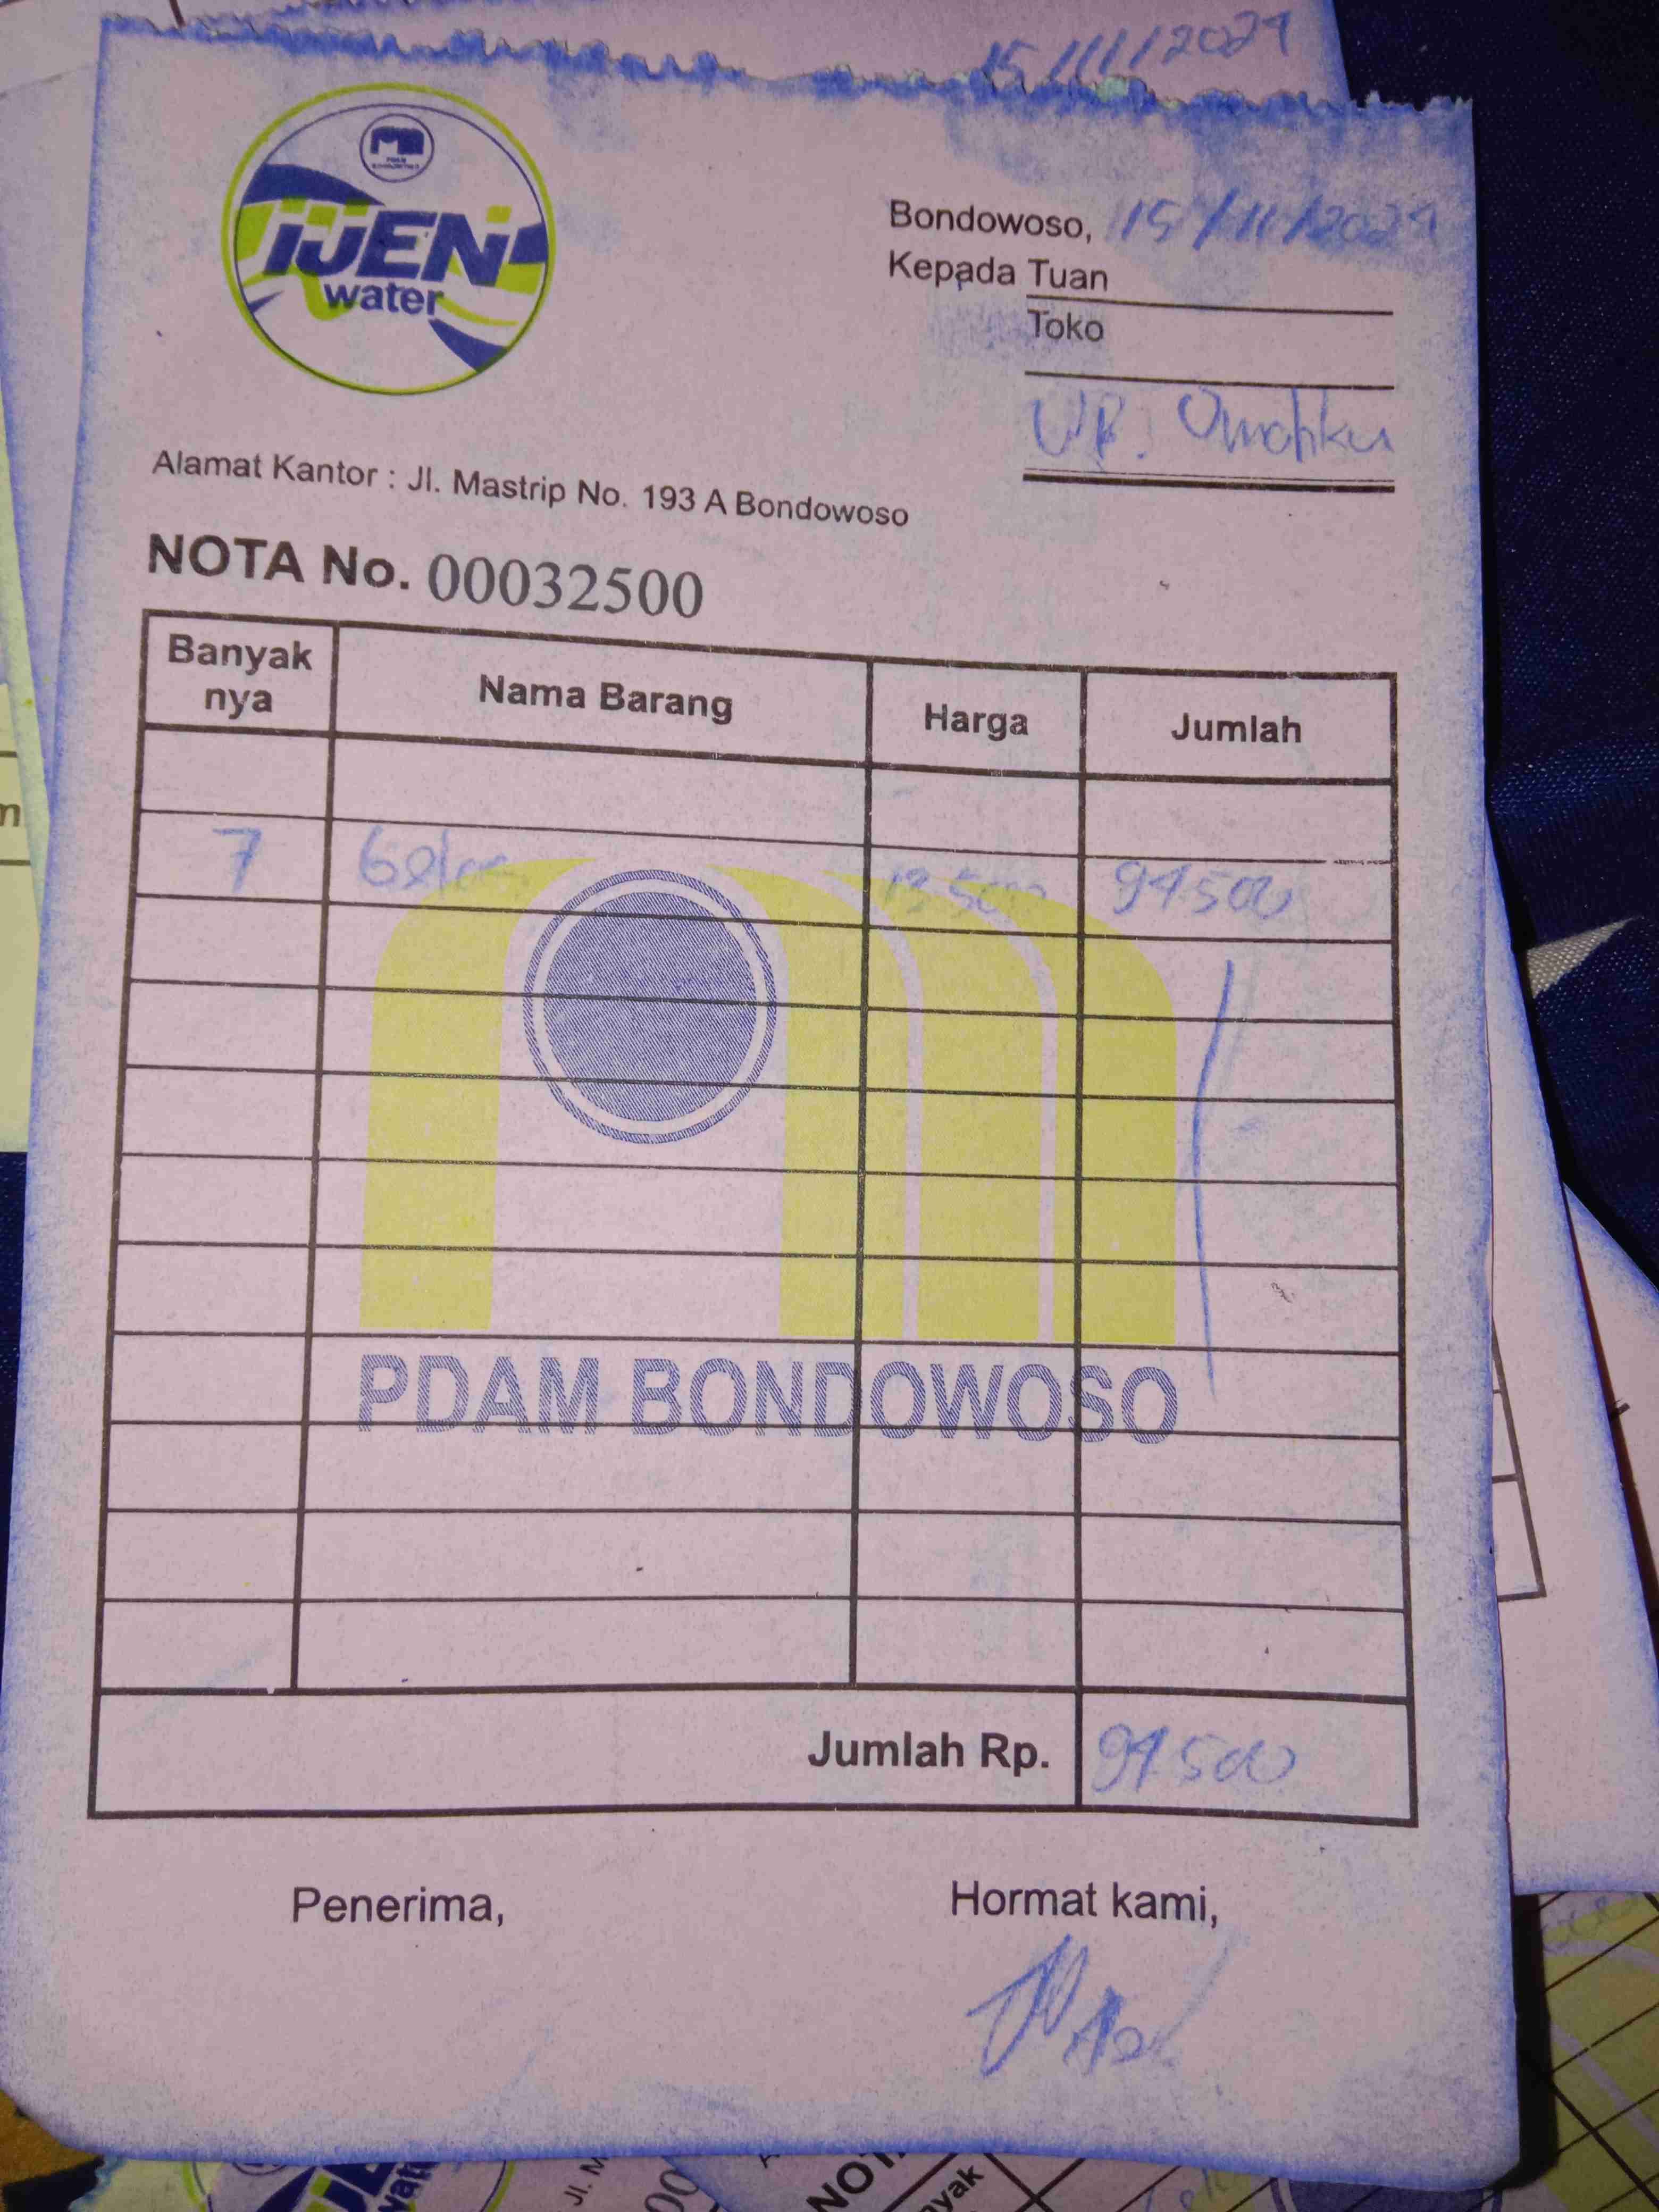 15/11/2024
IJEN
water
Bondowoso, 15/11/2024
Kepada Tuan
Toko
WR. Omahku
Alamat Kantor : Jl. Mastrip No. 193 A Bondowoso
NOTA No. 00032500
Banyak nya Nama Barang Harga Jumlah
7 Galon 13.500 94.500
PDAM BONDOWOSO
Jumlah Rp. 94.500
Penerima, Hormat kami,